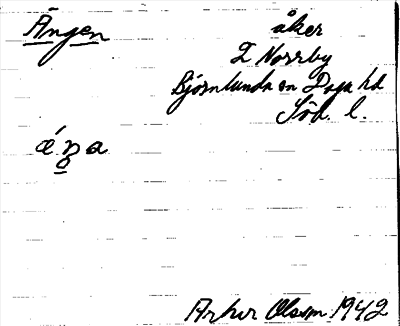 Ängen
åker
I Norrby
Björnlunda sn Daga hd
Söd. l.
Arhur Olsson 1942